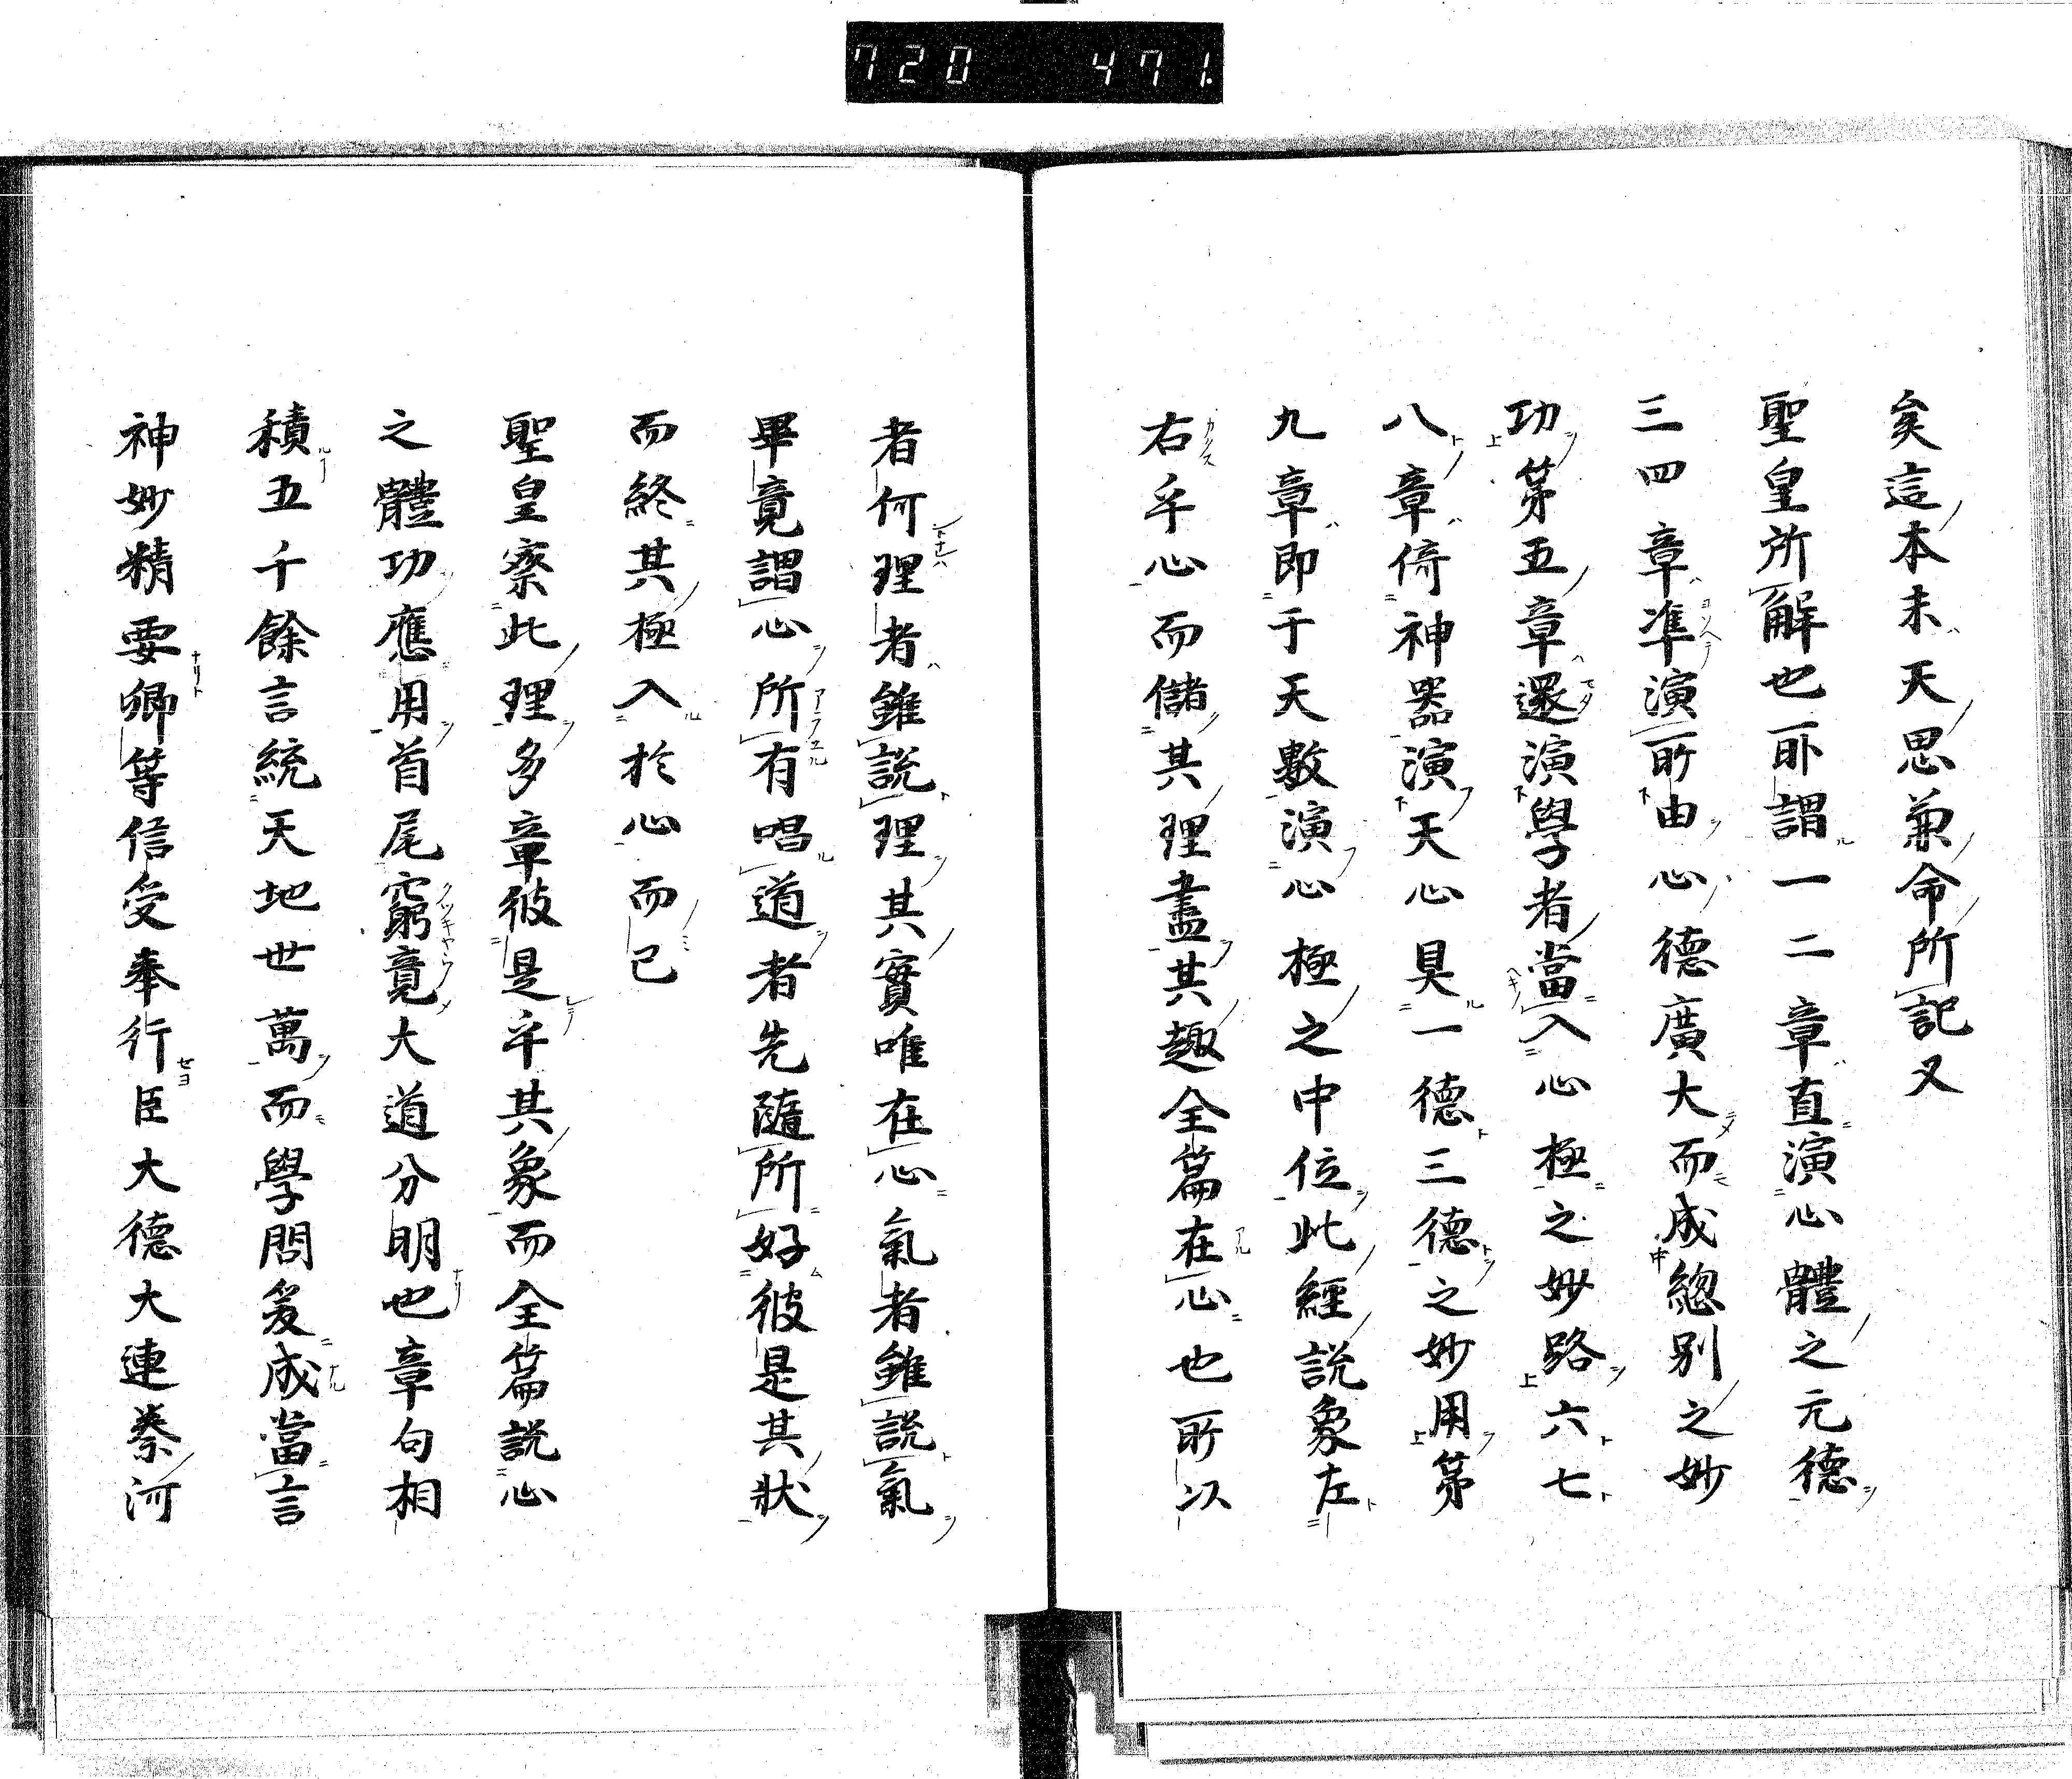 720 471.
矣這本未天思兼命所記又
聖皇所解也所謂一二章直演心體之元德
三四章準演所由心德廣大而成總別之妙
功第五章還演學者當入心極之妙路六七
八章倚神器演天心具一德三德之妙用第
九章即于天數演心極之中位此經說象左
右乎心而儲其理盡其趣全篇在心也所以
者何理者雖說理其實唯在心氣者雖說氣
畢竟謂心所有唱道者先隨所好彼是其狀
而終其極入於心而已
聖皇察此理多章彼是乎其象而全篇說心
之體功應用首尾窮竟大道分明也章句相
積五千餘言統天地世萬而學問爰成當言
神妙精要卿等信受奉行臣大德大連秦河